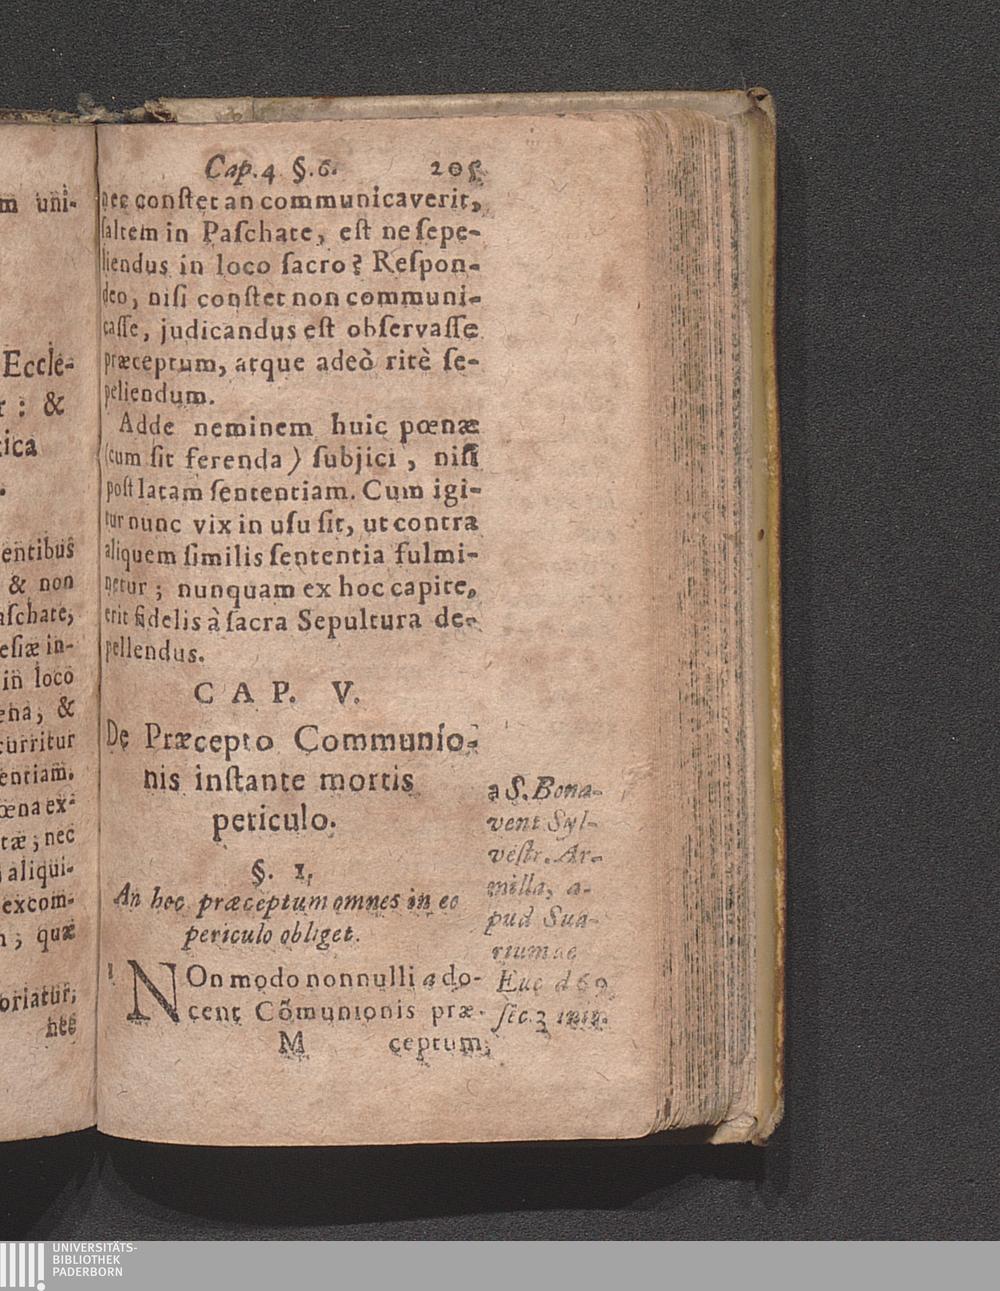 m uni-
Eccle-
r: &
tica
.
entibus
& non
aſchate,
eſiæ in-
in loco
ena, &
curritur
entiam.
œna ex-
tæ; nec
aliqui-
excom-
n; quæ
oriatur,
nec
Cap. 4 §. 6. 205
nec conſtet an communicaverit,
ſaltem in Paſchate, eſt ne ſepe-
liendus in loco ſacro? Reſpon-
deo, niſi conſtet non communi-
caſſe, judicandus eſt obſervaſſe
præceptum, atque adeò ritè ſe-
peliendum.
Adde neminem huic pœnæ
(cum ſit ferenda) ſubjici, niſi
poſt latam ſententiam. Cum igi-
tur nunc vix in uſu ſit, ut contra
aliquem ſimilis ſententia fulmi-
netur; nunquam ex hoc capite,
erit fidelis à ſacra Sepultura de-
pellendus.
CAP. V.
De Præcepto Communio-
nis inſtante mortis
periculo.
§. 1.
An hoc præceptum omnes in eo
periculo obliget.
1 NOn modo nonnulli a do-
cent Cõmunionis præ-
M ceptum,
a S. Bona-
vent Syl-
veſtr. Ar-
milla, a-
pud Sua-
rium de
Euc d 69
ſec. 3 inin.
UNIVERSITÄTS-
BIBLIOTHEK
PADERBORN